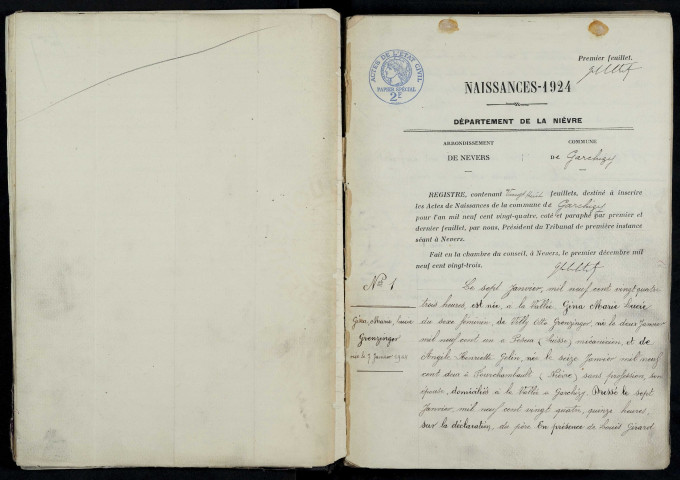 Premier feuillet.
ACTES DE L'ETAT CIVIL
PAPIER SPECIAL
2F
NAISSANCES-1924
DÉPARTEMENT DE LA NIÈVRE
ARRONDISSEMENT
DE NEVERS
COMMUNE
DE Garchizy
REGISTRE, contenant Vingt huit feuillets, destiné à inscrire
les Actes de Naissances de la commune de Garchizy
pour l'an mil neuf cent vingt-quatre, coté et paraphé par premier et
dernier feuillet, par nous, Président du Tribunal de première instance
séant à Nevers.
Fait en la chambre du conseil, à Nevers, le premier décembre mil
neuf cent vingt-trois.
N° 1
Gina, Marie, Lucie
Grenzinger
née le 7 Janvier
Le sept Janvier, mil neuf cent vingt quatre
trois heures, est née, à la Vallée Gina Marie Lucie
du sexe féminin, de Villy Otto Grenzinger, né le deux Janvier
mil neuf cent un à (Suisse) mécanicien, et de
Angèle Henriette Gelin, née le seize Janvier mil neuf
cent deux à Fourchambault (Nièvre) sans profession, son
épouse, domiciliés à la Vallée à Garchizy. Dressé le sept
Janvier, mil neuf cent vingt quatre, quinze heures,
sur la déclaration, du père. En présence de Girard,